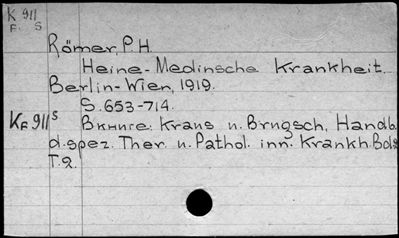 K 911
F. S
Römer, P.H.
Heine-Medinsche Krankheit.
Berlin-Wien, 1919.
S. 653-714.
KF 911 S
В книге: Kraus u. Brugsch, Handb.
d. spez. Ther. u. Pathol. inn. Krankh. Bd. 2
T. 2.